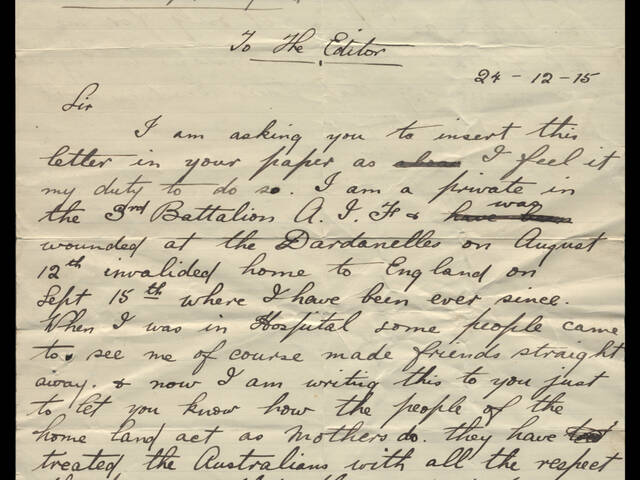 To The Editor
24 - 12 - 15
Sir
I am asking you to insert this
letter in your paper as I feel it
my duty to do so. I am a private in
the 3rd Battalion A. I. F & was
wounded at the Dardanelles on August
12th invalided home to England on
Sept 15th where I have been ever since.
When I was in Hospital some people came
to see me of course made friends straight
away. & now I am writing this to you just
to let you know how the people of the
home land act as Mothers do. they have
treated the Australians with all the respect